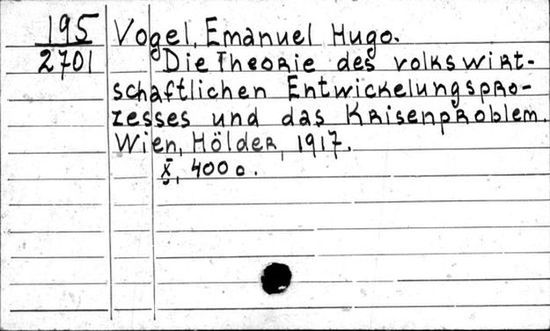 195
2701
Vogel, Emanuel Hugo.
Die Theorie des volkswirt-
schaftlichen Entwickelungspro-
zesses und das Krisenproblem.
Wien, Hölder, 1917.
X, 400 o.